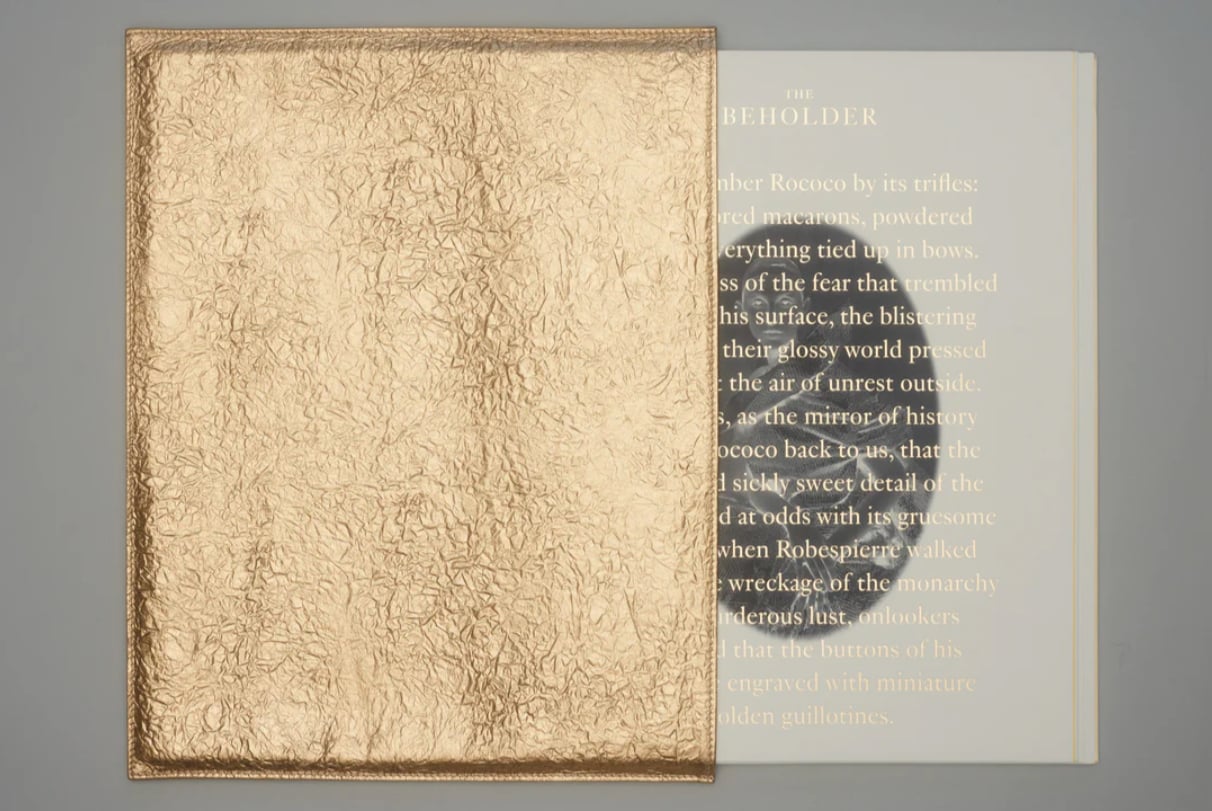 THE
BEHOLDER
mber Rococo by its trifles:
ored macarons, powdered
verything tied up in bows.
ss of the fear that trembled
his surface, the blistering
their glossy world pressed
t the air of unrest outside.
s, as the mirror of history
ococo back to us, that the
d sickly sweet detail of the
d at odds with its gruesome
when Robespierre walked
e wreckage of the monarchy
urderous lust, onlookers
d that the buttons of his
e engraved with miniature
olden guillotines.